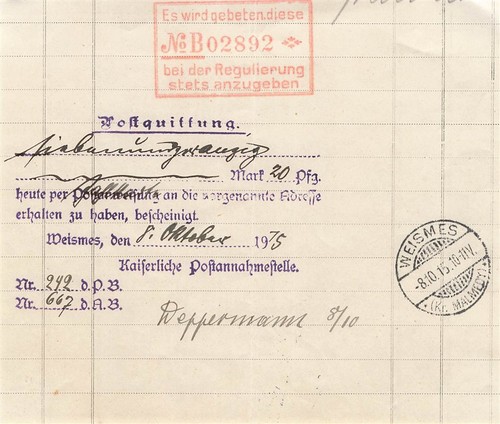 Es wird gebeten, diese
№ B02892
bei der Regulierung
stets anzugeben
Postquittung.
siebenundzwanzig
Mark 20 Pfg.
heute per Postanweisung an die vorgenannte Adresse
erhalten zu haben, bescheinigt.
Weismes, den 8. Oktober 1915
Kaiserliche Postannahmestelle.
Nr. 242 d. P. B.
Nr. 667 d. A. B.
WEISMES
-8.10.15.10-11V.
* (Kr. MALMEDY)
Deppermann 8/10